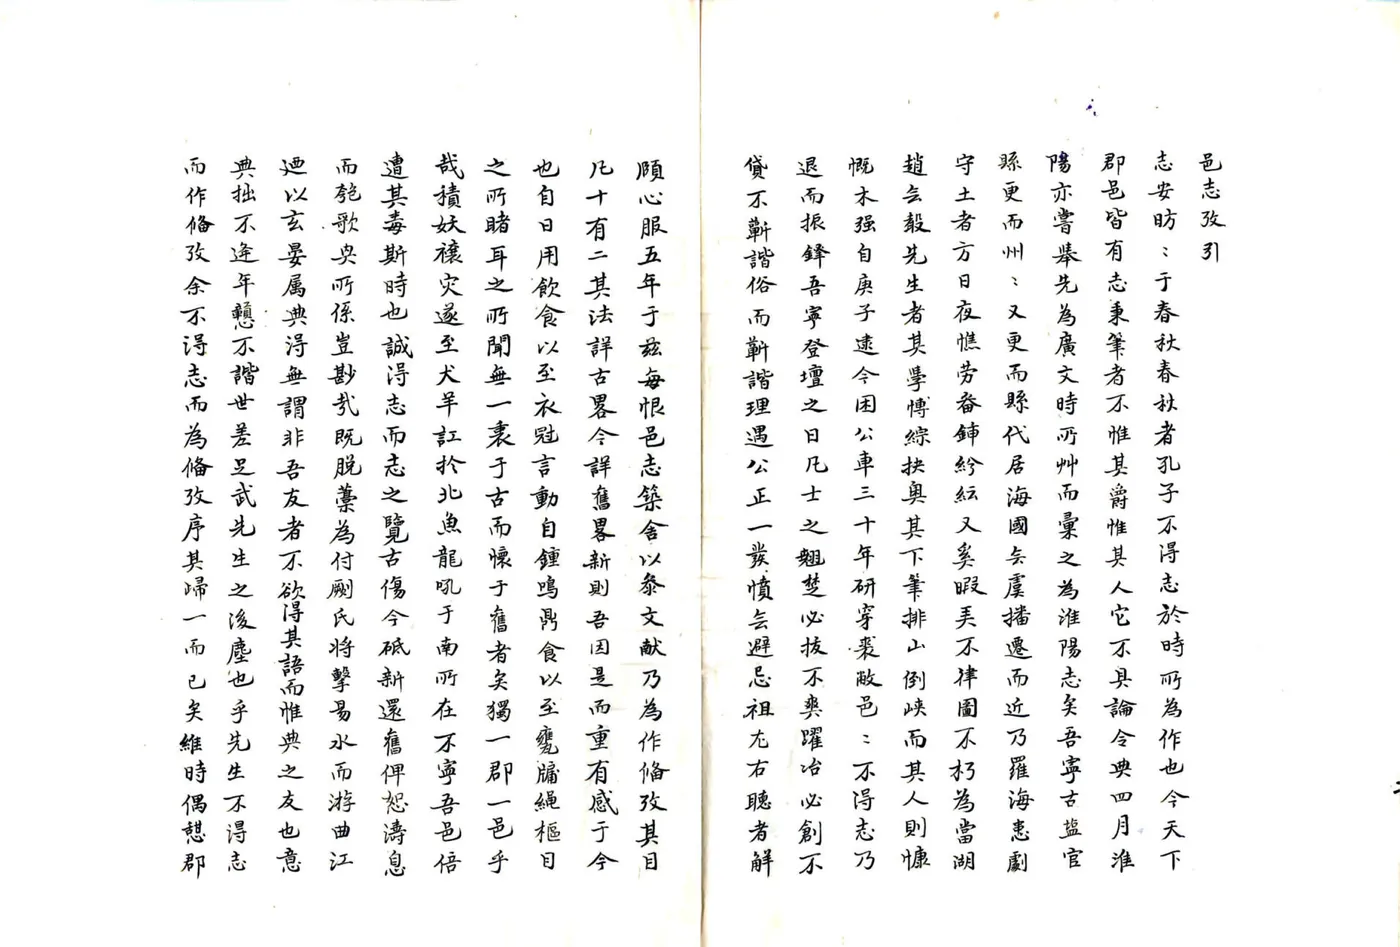 邑志攷引
志安昉〻于春秋春秋者孔子不得志於時所為作也今天下
郡邑皆有志秉筆者不惟其爵惟其人它不具論令典四月淮
陽亦嘗舉先為廣文時所艸而彙之為淮陽志矣吾寧古盐官
縣更而州〻又更而縣代居海國去虞播遷而近乃罹海患劇
守土者方日夜憔劳畚鍤紛紜又奚暇美不律圖不朽為當湖
趙公榖先生者其學博綜抉奥其下筆排山倒峡而其人則慷
慨木强自庚子逮今困公車三十年研穿裘敝邑〻不得志乃
退而振鋒吾寧登壇之日凡士之翹楚必拔不爽躍冶必創不
貸不蘄諧俗而蘄諧理遇公正一發憤去避忌祖左右聽者解
頤心服五年于兹每恨邑志築舍以叅文献乃為作脩攷其目
凡十有二其法詳古畧今詳舊畧新則吾因是而重有感于今
也自日用飲食以至衣冠言動自鍾鳴鼎食以至甕牖繩樞目
之所睹耳之所聞無一裏于古而懷于舊者矣獨一郡一邑乎
哉積妖穰灾遂至犬羊訌於北魚龍吼于南所在不寧吾邑倍
遭其毒斯時也誠得志而志之覽古傷今砥新還舊俾恕濤息
而匏歌央所係豈尠㢤既脱藁為付劂氏将擊易水而游曲江
廼以玄晏属典得無謂非吾友者不欲得其語而惟典之友也意
典拙不逢年戇不諧世差足武先生之後塵也乎先生不得志
而作脩攷余不得志而為脩攷序其歸一而已矣維時偶憇郡